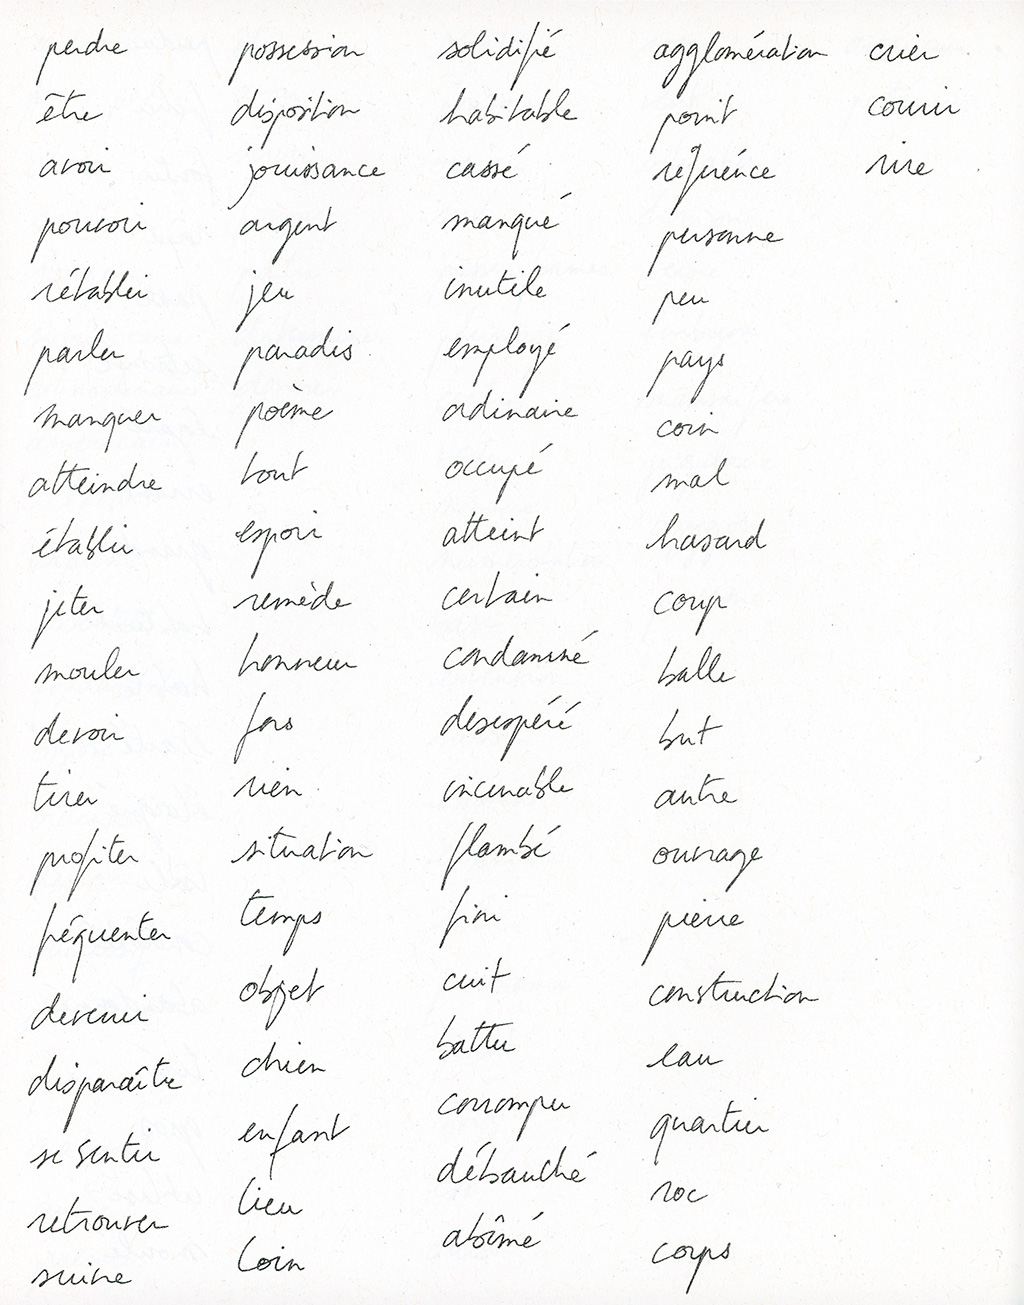 perdre
être
avoir
pouvoir
rétablir
parler
manquer
atteindre
établir
jeter
mouler
devoir
tirer
profiter
fréquenter
devenir
disparaître
se sentir
retrouver
suivre
possession
disposition
jouissance
argent
jeu
paradis
poème
tout
espoir
remède
honneur
fors
rien
situation
temps
objet
chien
enfant
lieu
loin
solidifié
habitable
cassé
manqué
inutile
employé
ordinaire
occupé
atteint
certain
condamné
desespéré
incurable
flambé
fini
cuit
battu
corrompu
débauché
abîmé
agglomération
point
reférence
personne
peu
pays
coin
mal
hasard
coup
balle
but
autre
ouvrage
pierre
construction
eau
quartier
roc
corps
crier
courir
rire